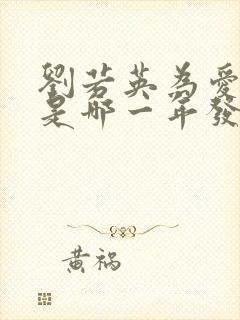 劉若英為愛
是哪一年發
黃禍